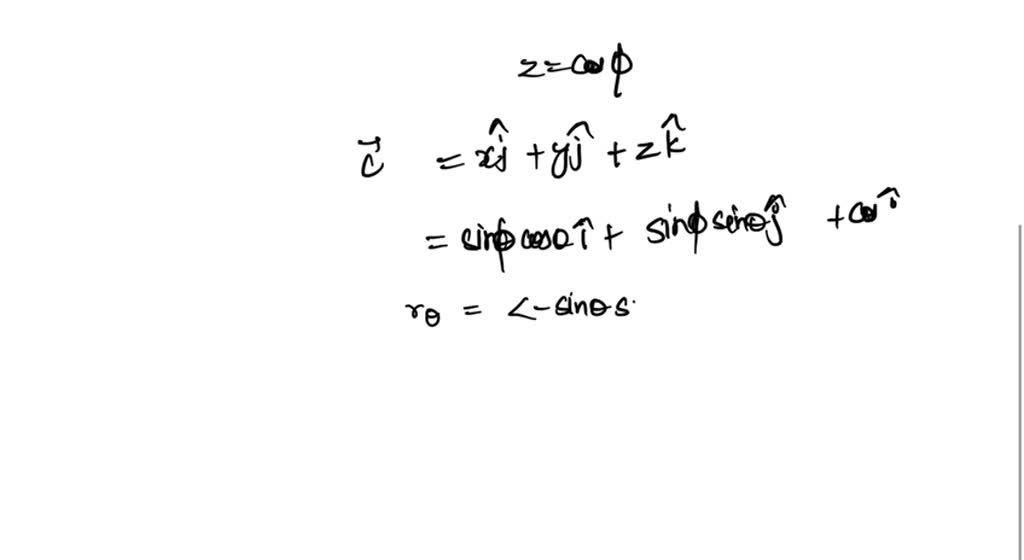 z = cos φ
c⃗ = xĵ + yĵ + zk̂
= sinφ cosθ î + sinφ sinθ ĵ + cos î
rθ = <-sinθ s